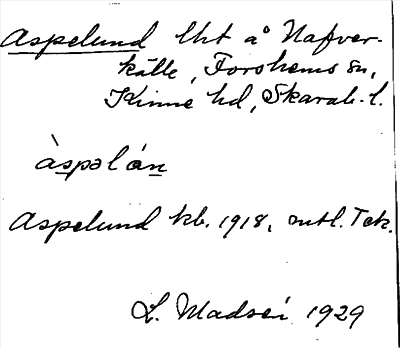 Aspelund lht å Nafver-
källe, Forshems sn,
Kinne hd, Skarab. l.
àspəl án
Aspelund kb. 1918, mtl. Tek.
L. Madsén 1929